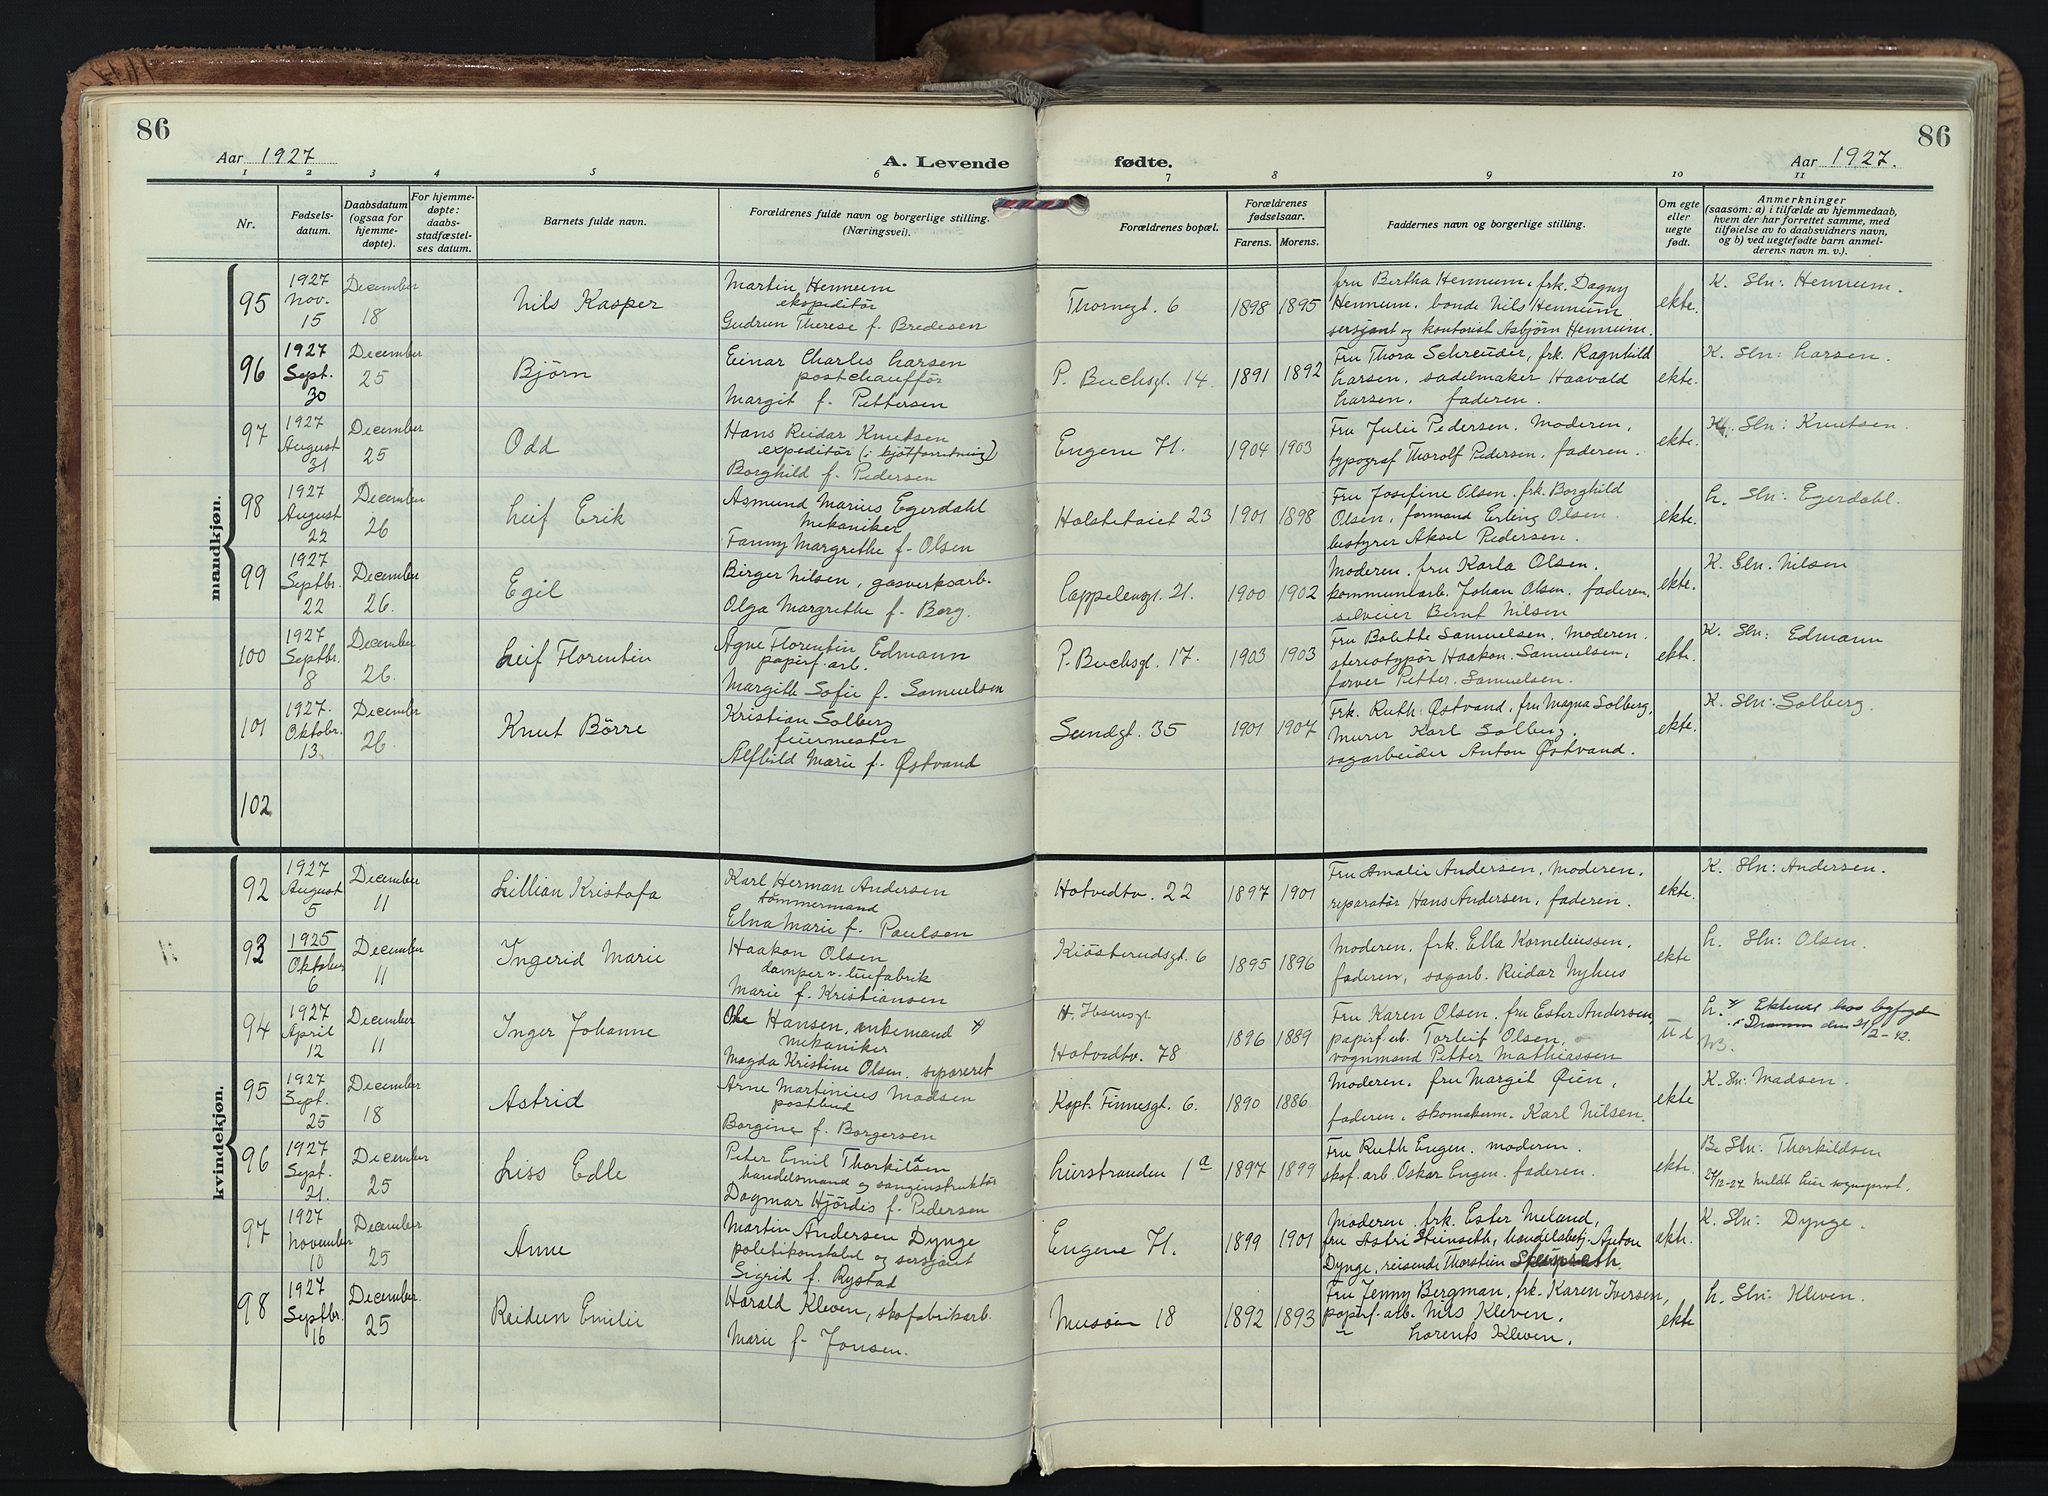 86
86
Aar 1927
A. Levende
fødte.
Aar 1927.
1 2 3 4 5 6 7 8 9 10 11
Nr.
Fødsels-
datum.
Daabsdatum
(ogsaa for
hjemme-
døpte).
For hjemme-
døpte:
daabs-
stadfæstel-
ses datum.
Barnets fulde navn.
Forældrenes fulde navn og borgerlige stilling.
(Næringsvei).
Forældrenes bopæl.
Forældrenes
fødselsaar.
Farens. Morens.
Faddernes navn og borgerlige stilling.
Om egte
eller
uegte
født.
Anmerkninger
(saasom: a) i tilfælde av hjemmedaab,
hvem der har forrettet samme, med
tilføielse av to daabsvidners navn,
og b) ved uegtefødte barn anmel-
derens navn m. v.).
mandkjøn.
95
1927
Nov.
15
December
18
Nils Kasper
Martin Hennum
ekspeditör
Gudrun Therese f. Bredesen
Thornegt. 6
1898 1895
fru Bertha Hennum, frk. Dagny
Hennum, bonde Nils Hennum
sersjant og kontorist Asbjørn Hennum.
ekte.
K. Sln: Hennum.
96
1927
Sept.
30
December
25
Björn
Einar Charles Larsen
postchaufför
Margit f. Pettersen
P. Buchsgt. 14.
1891 1892
Fru Thora Schreuder, frk. Ragnhild
Larsen, sadelmaker Haavald
Larsen, faderen.
ekte.
K. Sln: Larsen.
97
1927
August
31
December
25
Odd
Hans Reidar Knutsen
expeditör (i kjötforretning)
Borghild f. Pedersen
Engene 71.
1904 1903
Fru Julie Pedersen. Moderen,
typograf Thorolf Pedersen. faderen.
ekte.
Sln: Knutsen.
98
1927
August
22
December
26
Leif Erik
Asmund Marius Egerdahl
Mekaniker
Fanny Margrethe f. Olsen
Holstetaiet 23
1901 1898
Fru Josefine Olsen. frk. Borghild
Olsen, formand Erling Olsen.
bestyrer Aksel Pedersen.
ekte.
L. Sln: Egerdahl.
99
1927
Septbr.
22
December
26.
Egil
Birger Nilsen, gasverksarb.
Olga Margrethe f. Berg.
Cappelensgt. 21.
1900 1902
Moderen. fru Karla Olsen.
kommunearb. Johan Olsen. faderen,
Bernt Nilsen
ekte.
K. Sln. Nilsen
100
1927
Septbr.
8
December
26.
Leif Florentin
Agne Florentin Edmann
papirf. arb.
Margith Sofie f. Samuelsen
P. Buchsgt. 17.
1903 1903
Fru Bolette Samuelsen. Moderen.
stereotypör Haakon Samuelsen,
farver Petter Samuelsen.
ekte.
K. Sln: Edmann
101
1927.
Oktobr.
13.
December
26.
Knut Börre
Kristian Solberg
feiermester
Alfhild Marie f. Østvand
Sundgt. 35
1901 1907
Frk. Ruth Østvand, fru Magna Solberg,
Murer Karl Solberg.
sagarbeider Anton Østvand.
ekte.
K. Sln: Solberg.
102
kvindekjøn.
92
1927
August
5
December
11
Lillian Kristofa
Karl Herman Andersen
tömmermand
Elna Marie f. Paulsen
Hotvedtv. 22
1897 1901
Fru Amalie Andersen, Moderen,
reparatör Hans Andersen, faderen.
ekte.
K. Sln: Andersen.
93
1925
Oktober
6
December
11
Ingerid Marie
Haakon Olsen
damper v. luefabrik
Marie f. Kristiansen
Kiösterudsgt. 6
1895 1896
Moderen, frk. Ella Korneliussen,
faderen, sagarb. Reidar Nyhus
ekte
L. Sln: Olsen.
94
1927
April
12
December
11
Inger Johanne
Ole Hansen, enkemand
mekaniker
Magda Kristine Olsen, separeret
H. Ibsensgt.
Hotvedtv. 78
1896 1889
Fru Karen Olsen, fru Ester Andersen,
papirf. arb. Torleif Olsen,
vognmand Petter Mathiassen
u e
L. Ekteviet hos byfogden
i Dramm den 21/2-42.
95
1927
Sept.
25
December
18
Astrid
Arne Martinius Madsen
postbud
Borgine f. Borgersen
Kapt. Finnesgt. 6.
1890 1886
Moderen. fru Margit Øien,
faderen, skomakerm. Karl Nilsen.
ekte
K. Sln: Madsen.
96
1927
Sept.
21.
December
25
Liss Edle
Peter Emil Thorkildsen
handelsmand og sanginstruktör
Dagmar Hjördis f. Pedersen
Lierstranden 1a
1897 1899
Fru Ruth Engen, moderen.
skof. arb Oskar Engen. faderen.
ekte.
Sln: Thorkildsen
29/12-27 meldt Lier sogneprest.
97
1927
November
10
December
25
Anne
Martin Andersen Dynge
politikonstabel og sersjant
Sigrid f. Rystad
Engene 71.
1899 1901
Moderen, frk. Ester Meland,
fru Astri Steinseth, handelsbetj. Anton
Dynge, reisende Thorstein
ekte.
K. Sln: Dynge.
98
1927
Septbr.
16
December.
25
Reidun Emilie
Harald Kleven, skofabrikarb.
Marie f. Jonsen.
Musöen 18
1892 1893
Fru Jenny Bergman, frk. Karen Iversen,
papirf. arb. Nils Kleven.
" Lorents Kleven.
ekte
L. Sln: Kleven.